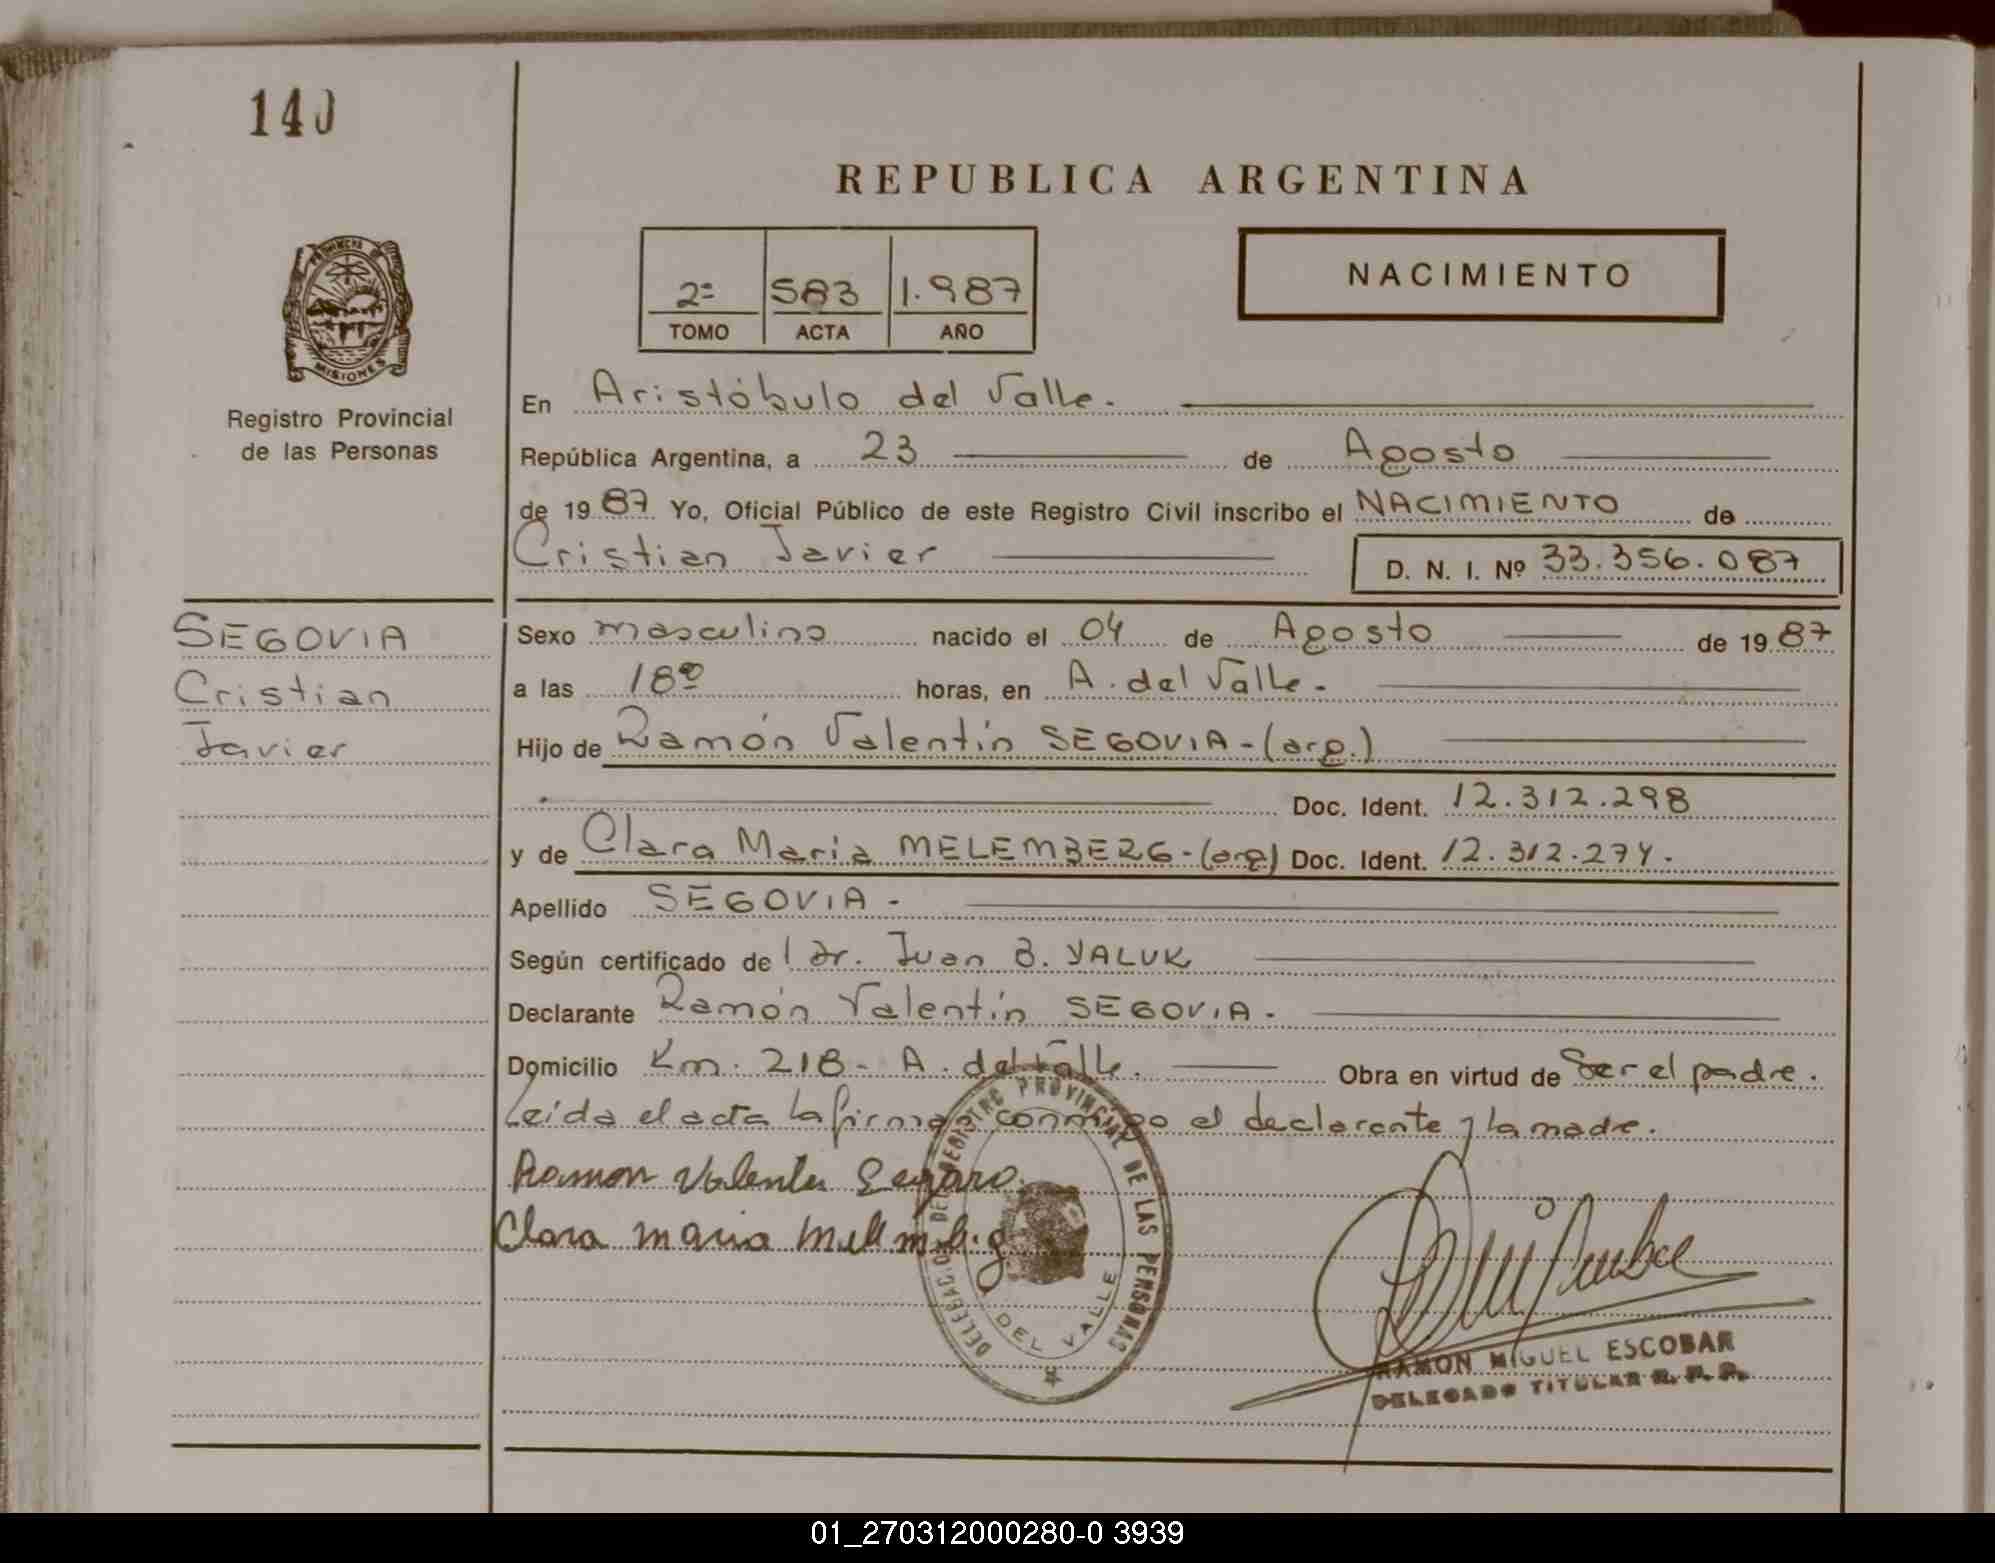 140
REPUBLICA ARGENTINA
PROVINCIA DE
MISIONES
Registro Provincial
de las Personas
2º 583 1.987
TOMO ACTA AÑO
NACIMIENTO
En Aristóbulo del Valle.
República Argentina, a 23 de Agosto
de 1987 Yo, Oficial Público de este Registro Civil inscribo el NACIMIENTO de
Cristian Javier
D. N. I. Nº 33.356.087
SEGOVIA
Cristian
Javier
Sexo masculino nacido el 04 de Agosto de 1987
a las 18⁰⁰ horas, en A. del Valle.
Hijo de Ramón Valentín SEGOVIA-(arg.)
Doc. Ident. 12.312.298
y de Clara María MELEMBERG-(arg) Doc. Ident. 12.312.274.
Apellido SEGOVIA -
Según certificado del Dr. Juan B. YALUK
Declarante Ramón Valentín SEGOVIA.
Domicilio Km. 218- A. del Valle. Obra en virtud de Ser el padre.
Leida el acta la firma conmigo el declarante y la madre.
Ramon
Clara Maria
DELEGACION DEL REGISTRO PROVINCIAL DE LAS PERSONAS
DEL VALLE
RAMON MIGUEL ESCOBAR
DELEGADO TITULAR R. P. P.
01_270312000280-0 3939